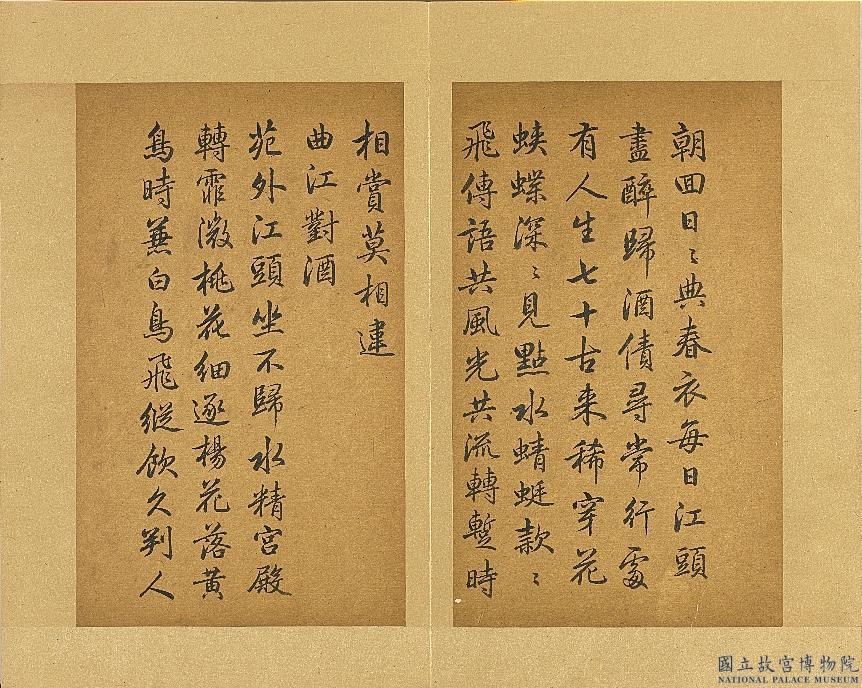 朝回日〻典春衣每日江頭
盡醉歸酒債尋常行處
有人生七十古來稀穿花
蛺蝶深〻見點水蜻蜓款〻
飛傳語共風光共流轉蹔時
相賞莫相違
曲江對酒
苑外江頭坐不歸水精宮殿
轉霏微桃花細逐楊花落黃
鳥時蒹白鳥飛縱飲久判人
國立故宮博物院
NATIONAL PALACE MUSEUM